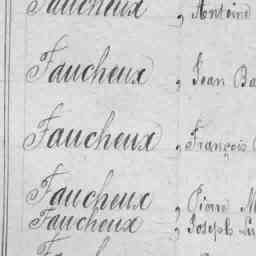 Faucheux, Antoine
Faucheux, Jean Ba
Faucheux, François
Faucheux, Pierre M
Faucheux, Joseph
Fauche